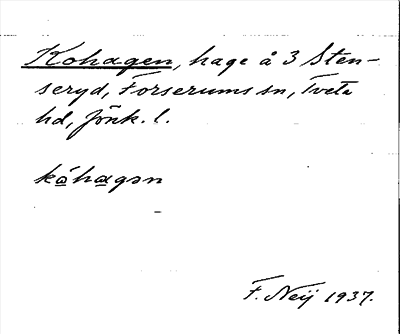 Kohagen, hage å 3 Sten-
seryd, Forserums sn, Tveta
hd, Jönk. l.
kåhagən
F. Neij 1937.